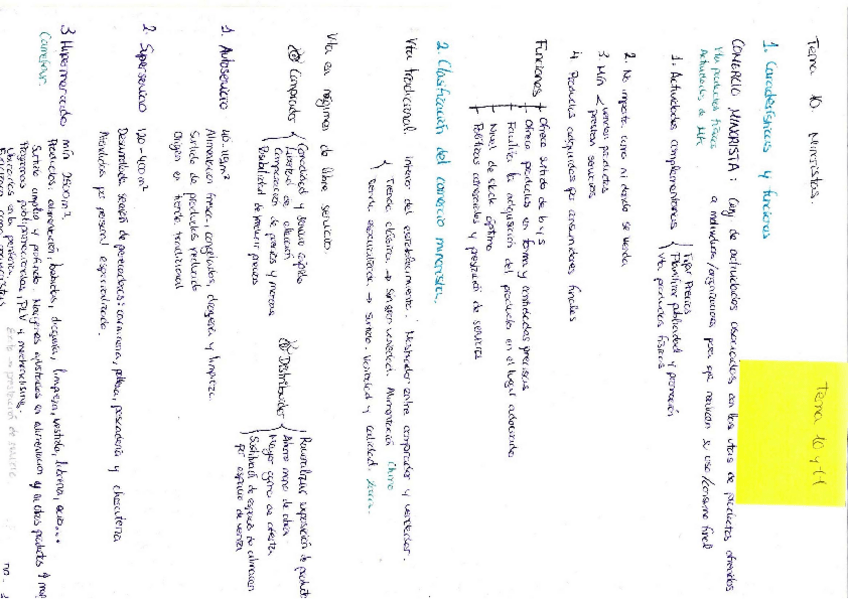 Tema 10. Minoristas.
Tema 10 y 11
1. Características y funciones
COMERCIO MINORISTA: Conj. de actividades asociadas con las vtas de productos ofrecidos
a individuos/organizaciones para que realicen su uso/consumo final
Vta productos físicos
Actividades de Mk
1. Actividades complementarias
Fijar Precios
Planificar publicidad y promoción
Vta productos físicos
2. No importa como ni donde se venda
3. Min < venden productos
prestan servicios
4. Productos adquiridos por consumidores finales
Funciones
Ofrece surtido de b y s
Ofrece productos en forma y cantidades precisas
Facilita la adquisición del producto en el lugar adecuado
Nivel de stock óptimo
Políticas comerciales y prestación de servicios
2. Clasificación del comercio minorista.
Vta tradicional. Interior del establecimiento. Mostrador entre comprador y vendedor.
Tienda clásica → Sin gran variedad. Alimentación. Chino
Tienda especializada → Surtido. Variedad y calidad. Zara.
Vta en régimen de libre servicio.
Comprador
Comodidad y servicio rápido
Libertad de elección
Comparación de precios y marcas
Posibilidad de reducir precios
Distribuidor
Racionalizar exposición de product
Ahorro mano de obra
Mayor gama de oferta
Sustitución de espacio de almacen
por espacio de venta
1. Autoservicio 40-119 m²
Alimentación fresca, congelados, droguería y limpieza
Surtido de productos reducido
Origen en tienda tradicional
2. Superservicio 120-400 m²
Desarrollada sección de perecederos: carnicería, polleria, pescadería y charcutería
Atendidas por personal especializado.
3 Hipermercado min 2500 m²
Carrefour.
Productos: alimentación, bebidas, droguería, limpieza, vestido, librería, ocio...
Surtido amplio y profundo. Margenes ajustados en alimentación y otros productos
Programas publipromocionales, PLV y merchandising.
Ubicación en la periferia